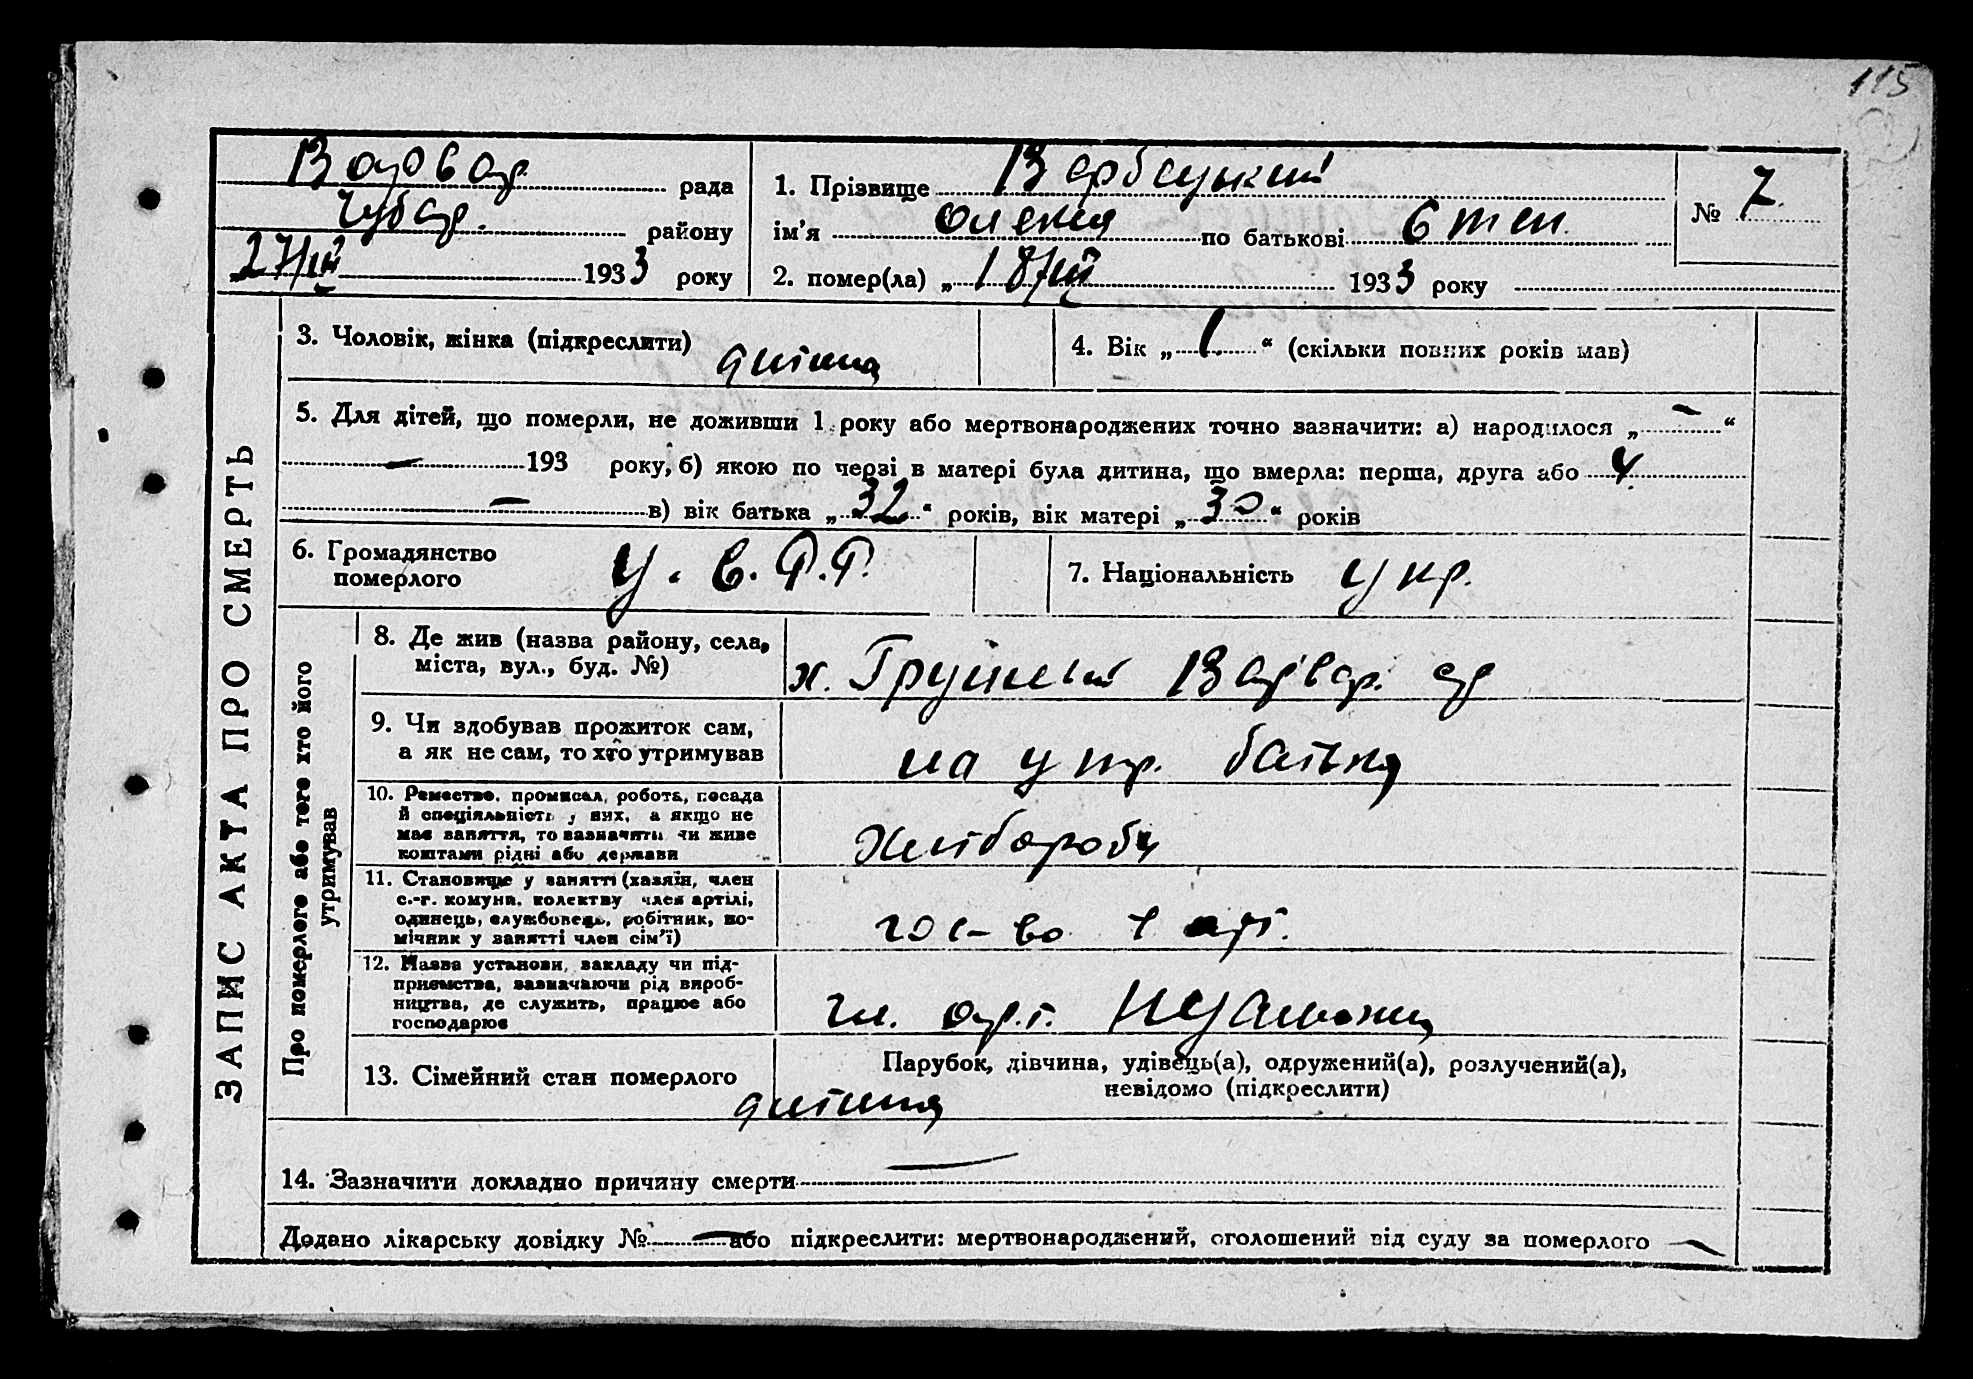 115
Варвар. рада
Чубар. району
27/III 1933 року
1. Прізвище Вербецький
ім'я Олекса по батькові Степ.
2. помер(ла) „ 18/III 1933 року
№ 7
ЗАПИС АКТА ПРО СМЕРТЬ
3. Чоловік, жінка (підкреслити) дитина
4. Вік „ 1 “ (скільки повних років мав)
5. Для дітей, що померли, не доживши 1 року або мертвонароджених точно зазначити: а) народилося „ — “
— 193 року, б) якою по черзі в матері була дитина, що вмерла: перша, друга або 4
— в) вік батька „ 32 “ років, вік матері „ 30 “ років
6. Громадянство
померлого
У. С. Р. Р.
7. Національність укр.
Про померлого або того хто його
утримував
8. Де жив (назва району, села,
міста, вул., буд. №)
х. Грушеви Варвар. ср
9. Чи здобував прожиток сам,
а як не сам, то хто утримував
на утр. батька
10. Ремество, промисел, робота, посада
й спеціяльність у них, а якщо не
має заняття, то зазначити чи живе
коштами рідні або держави
Хлібороби
11. Становище у занятті (хазяїн, член
с.-г. комуни, колектву член артілі,
одинець, службовець, робітник, по-
мічник у занятті член сім'ї)
гос-во в арт.
12. Назва установи, закладу чи під-
приємства, зазначаючи рід вироб-
ництва, де служить, працює або
господарює
чл. арт. Незаможник
13. Сімейний стан померлого
дитина
Парубок, дівчина, удівець(а), одружений(а), розлучений(а),
невідомо (підкреслити)
14. Зазначити докладно причину смерти —
Додано лікарську довідку № — або підкреслити: мертвонароджений, оголошений від суду за померлого —